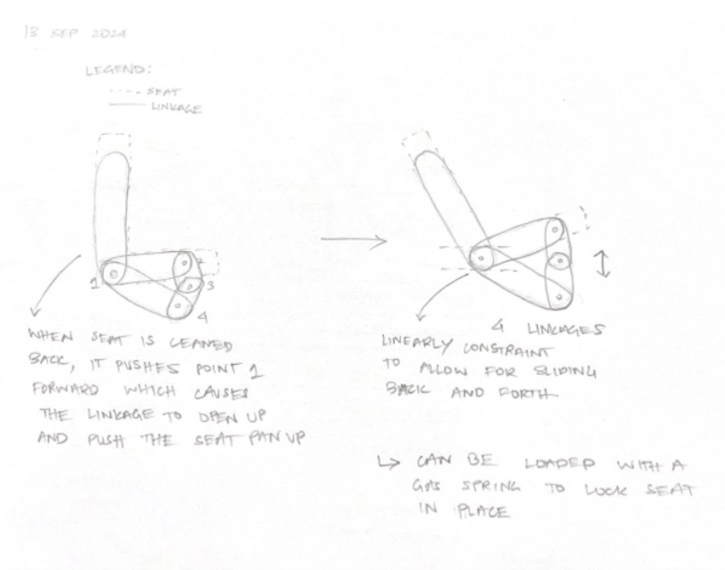 13 SEP 2024
LEGEND:
SEAT
LINKAGE
1
2
3
4
WHEN SEAT IS LEANED
BACK, IT PUSHES POINT 1
FORWARD WHICH CAUSES
THE LINKAGE TO OPEN UP
AND PUSH THE SEAT PAN UP
4 LINKAGES
LINEARLY CONSTRAINT
TO ALLOW FOR SLIDING
BACK AND FORTH
↳ CAN BE LOADED WITH A
GAS SPRING TO LOCK SEAT
IN PLACE